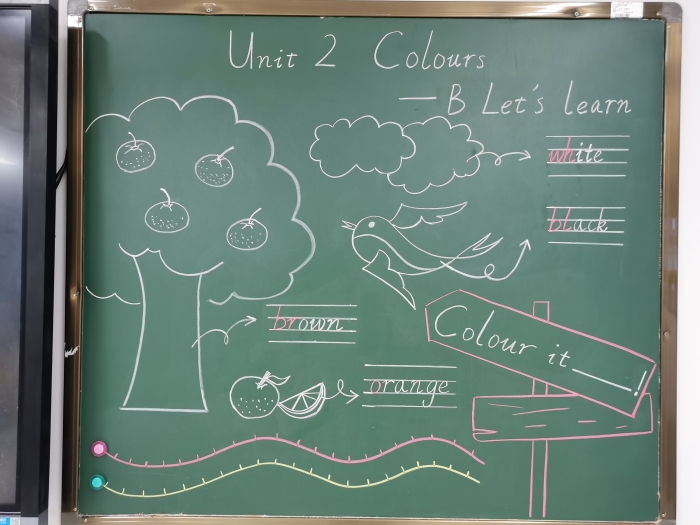 Unit 2 Colours
— B Let's learn
white
black
brown
Colour it ____!
orange